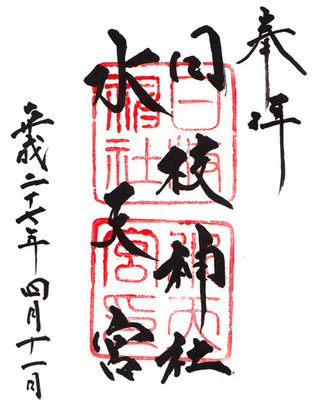 奉拝
日枝神社
水天宮
平成二十七年四月十一日
日枝
神社
水天
宮印